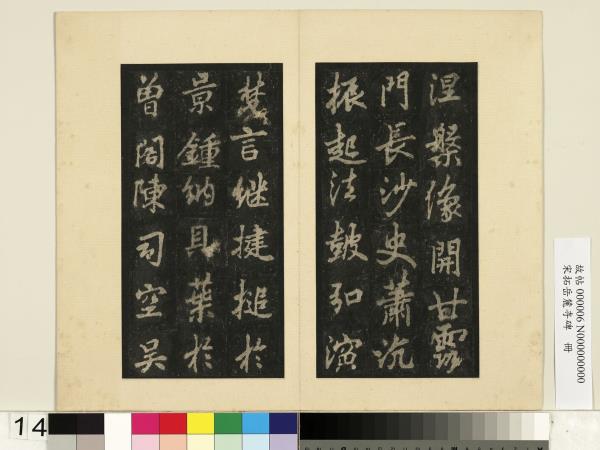 涅槃像開甘露
門長沙史蕭沉
振起法鼓弘演
梵言继揵搥於
景鍾納貝葉於
曽閣陳司空吴
故帖 000006 N000000000
宋拓岳麓寺碑 冊
14